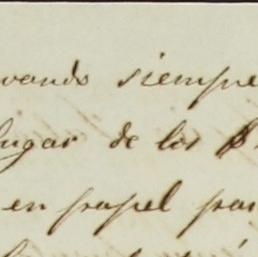 vando siempre
lugar de los
en papel par